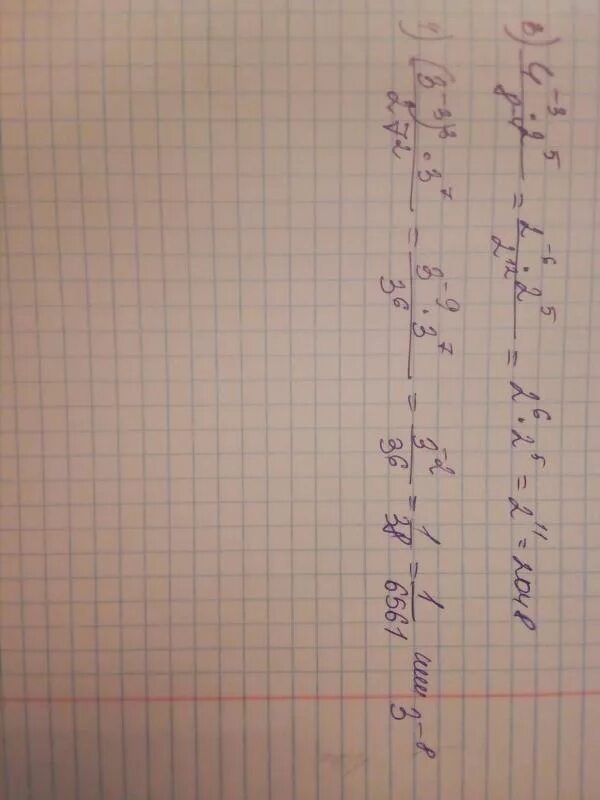 в) (4^-3 · 2^5) / 8^-4 = (2^-6 · 2^5) / 2^12 = 2^6 · 2^5 = 2^11 = 2048
г) ((3^-3)^3 · 3^7) / 27^2 = (3^-9 · 3^7) / 3^6 = 3^-2 / 3^6 = 1 / 3^8 = 1 / 6561 или 3^-8